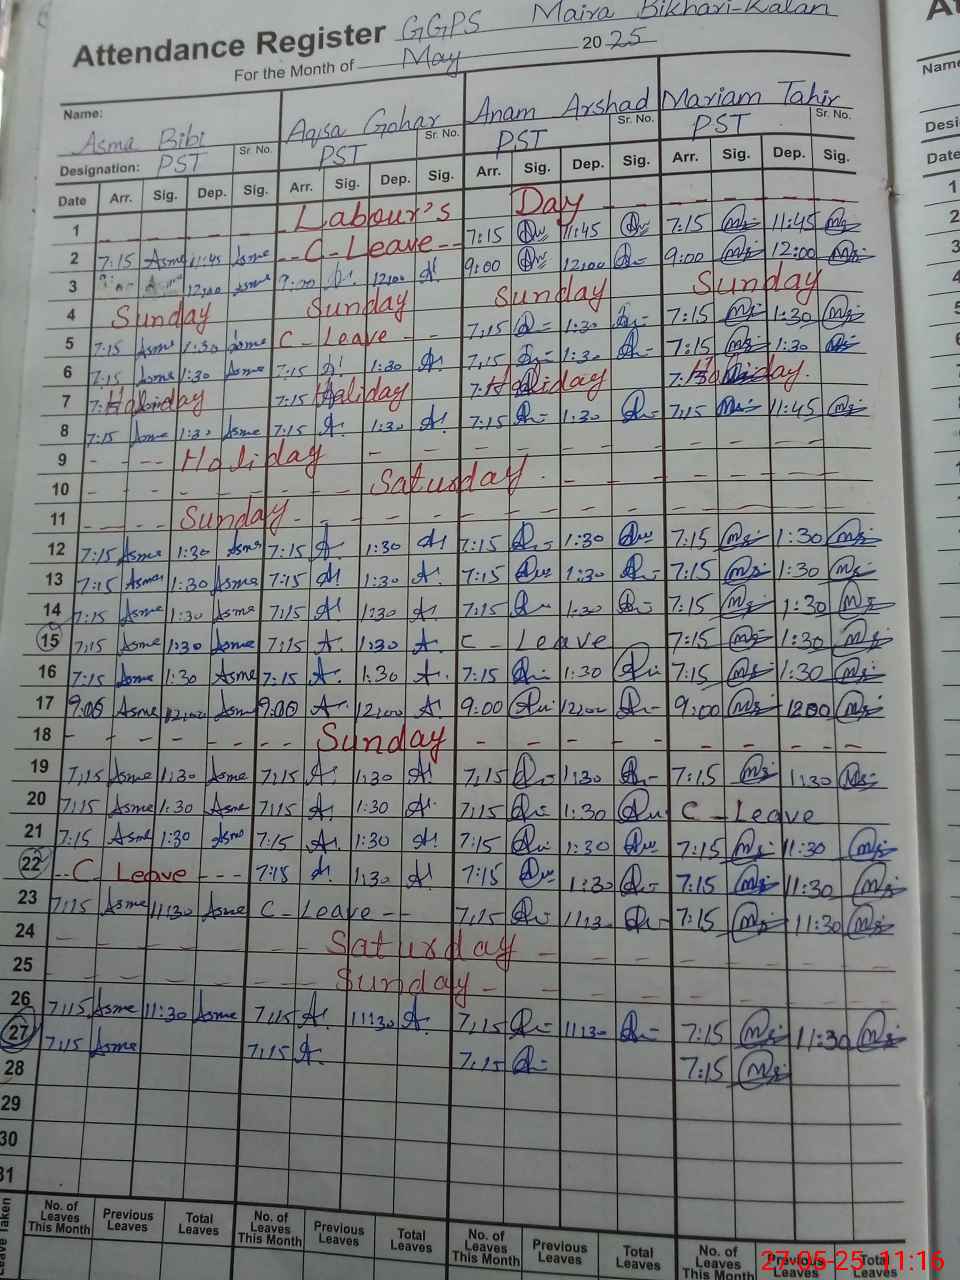 Attendance Register GGPS Maira Bikhari-Kalan
For the Month of May 2025
Name: Asma Bibi Aqsa Gohar Anam Arshad Mariam Tahir
Designation: PST Sr. No. PST Sr. No. PST Sr. No. PST Sr. No.
Date Arr. Sig. Dep. Sig. Arr. Sig. Dep. Sig. Arr. Sig. Dep. Sig. Arr. Sig. Dep. Sig.
1 Labour's Day
2 7:15 Asma 11:45 Asma C-Leave 7:15 11:45 7:15 11:45
3 12:00 Asma 9:00 12:00 9:00 12:00 9:00 12:00
4 Sunday Sunday Sunday Sunday
5 7:15 Asma 1:30 Asma C-Leave 7:15 1:30 7:15 1:30
6 7:15 Asma 1:30 Asma 7:15 1:30 7:15 1:30 7:15 1:30
7 Holiday 7:15 Haliday Holiday Holiday
8 7:15 Asma 1:30 Asma 7:15 1:30 7:15 1:30 7:15 11:45
9 Holiday
10 Saturday
11 Sunday
12 7:15 Asma 1:30 Asma 7:15 1:30 7:15 1:30 7:15 1:30
13 7:15 Asma 1:30 Asma 7:15 1:30 7:15 1:30 7:15 1:30
14 7:15 Asma 1:30 Asma 7:15 1:30 7:15 1:30 7:15 1:30
15 7:15 Asma 1:30 Asma 7:15 1:30 C Leave 7:15 1:30
16 7:15 Asma 1:30 Asma 7:15 1:30 7:15 1:30 7:15 1:30
17 9:00 Asma 12:00 Asma 9:00 12:00 9:00 12:00 9:00 1200
18 Sunday
19 7:15 Asma 1:30 Asma 7:15 1:30 7:15 1:30 7:15 1:30
20 7:15 Asma 1:30 Asma 7:15 1:30 7:15 1:30 C-Leave
21 7:15 Asma 1:30 Asma 7:15 1:30 7:15 1:30 7:15 11:30
22 C Leave 7:15 1:30 7:15 1:30 7:15 11:30
23 7:15 Asma 11:30 Asma C-Leave 7:15 7:15 11:30
24 Saturday
25 Sunday
26 7:15 Asma 11:30 Asma 7:15 11:30 7:15 11:30 7:15 11:30
27 7:15 Asma 7:15 7:15 7:15
28
29
30
31
Leave Taken No. of Leaves This Month Previous Leaves Total Leaves No. of Leaves This Month Previous Leaves Total Leaves No. of Leaves This Month Previous Leaves Total Leaves No. of Leaves This Month Previous Leaves Total Leaves
27-05-25 11:16